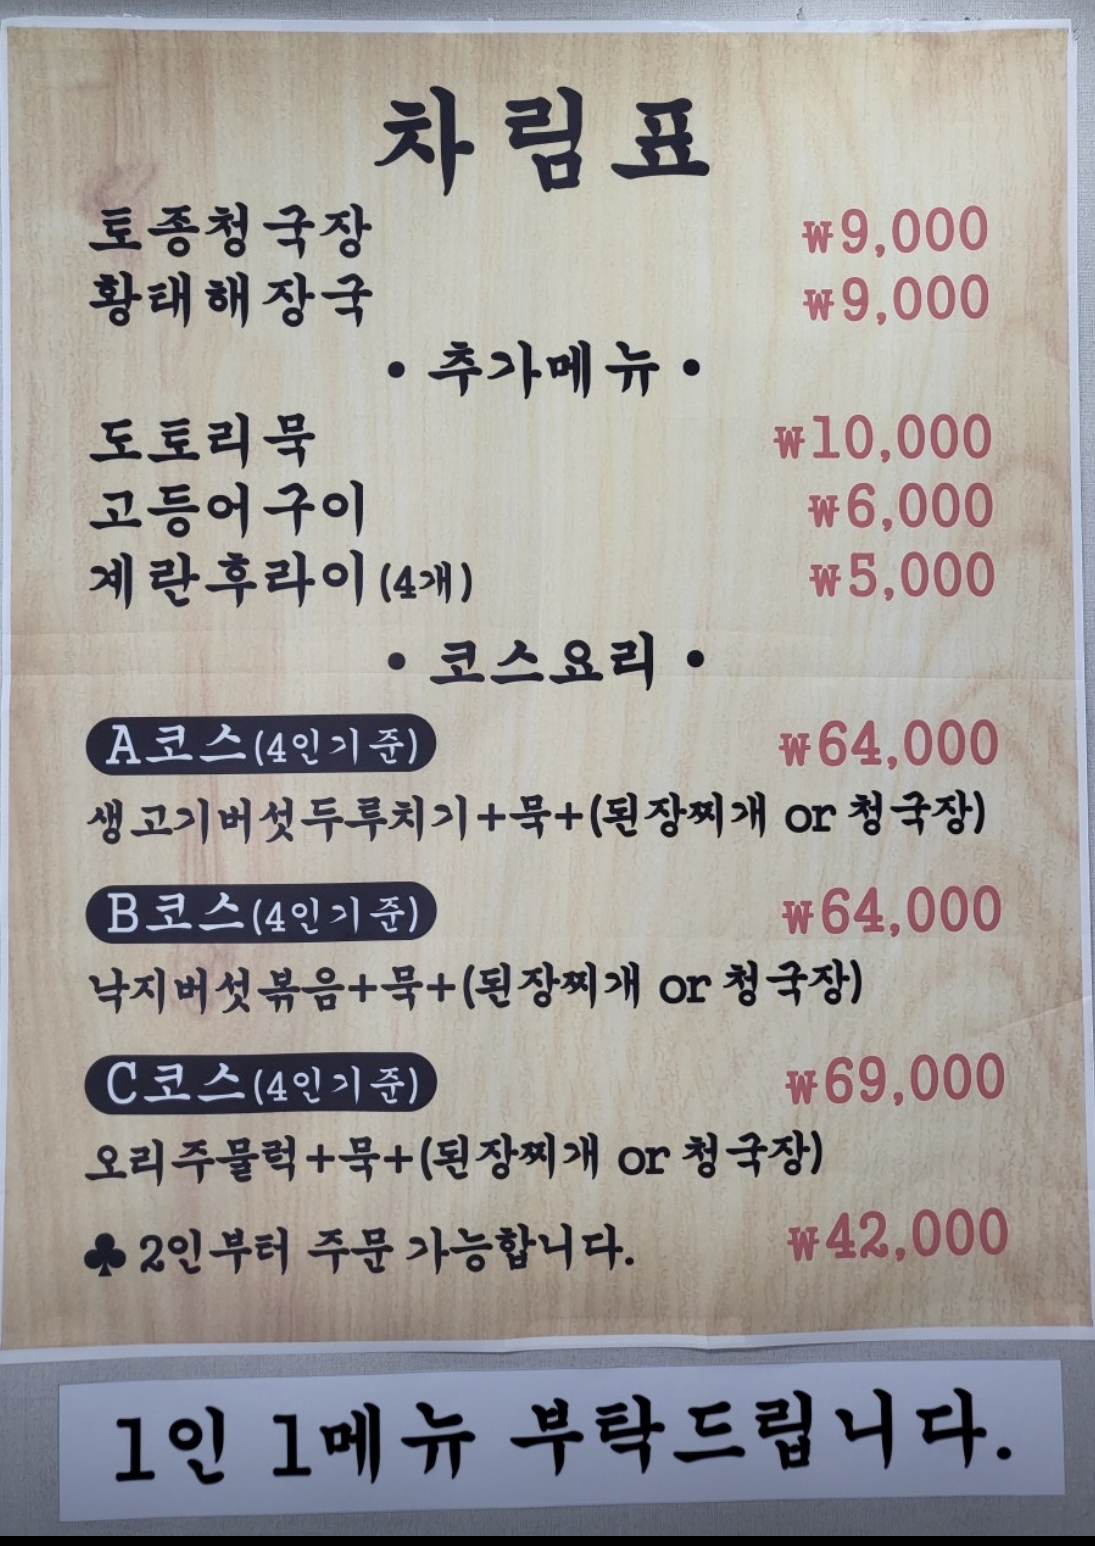 차림표
토종청국장 ₩9,000
황태해장국 ₩9,000
• 추가메뉴 •
도토리묵 ₩10,000
고등어구이 ₩6,000
계란후라이(4개) ₩5,000
• 코스요리 •
A코스(4인기준) ₩64,000
생고기버섯두루치기+묵+(된장찌개 or 청국장)
B코스(4인기준) ₩64,000
낙지버섯볶음+묵+(된장찌개 or 청국장)
C코스(4인기준) ₩69,000
오리주물럭+묵+(된장찌개 or 청국장)
♣2인부터 주문 가능합니다. ₩42,000
1인 1메뉴 부탁드립니다.